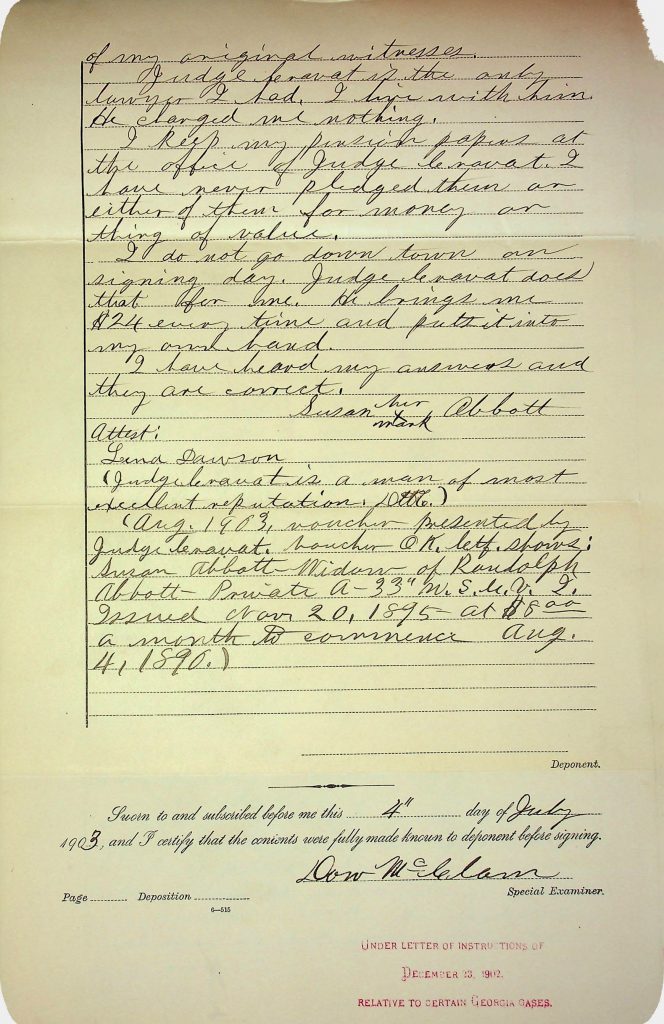 of my original witnesses.
Judge Cravat is the only
lawyer I had. I live with him.
He charged me nothing.
I keep my pension papers at
the office of Judge Cravat. I
have never pledged them or
either of them for money or
thing of value.
I do not go down town on
signing day. Judge Cravat does
that for me. He brings me
$24 every time and puts it into
my own hand.
I have heard my answers and
they are correct.
Susan her mark Abbott
Attest:
Lena Dawson
(Judge Cravat is a man of most
excellent reputation.
(Aug. 1903, voucher presented by
Judge Cravat. Voucher O.K. Ctf. shows:
Susan Abbott Widow of Randolph
Abbott Private A-33" U.S.C.V.I.
Issued Nov. 20, 1895 at $8 00
a month to commence Aug.
4, 1890.)
Deponent.
Sworn to and subscribed before me this 4" day of July
1903, and I certify that the contents were fully made known to deponent before signing.
Dow McClain
Special Examiner.
Page Deposition
6—515
UNDER LETTER OF INSTRUCTIONS OF
DECEMBER 23, 1902,
RELATIVE TO CERTAIN GEORGIA CASES.